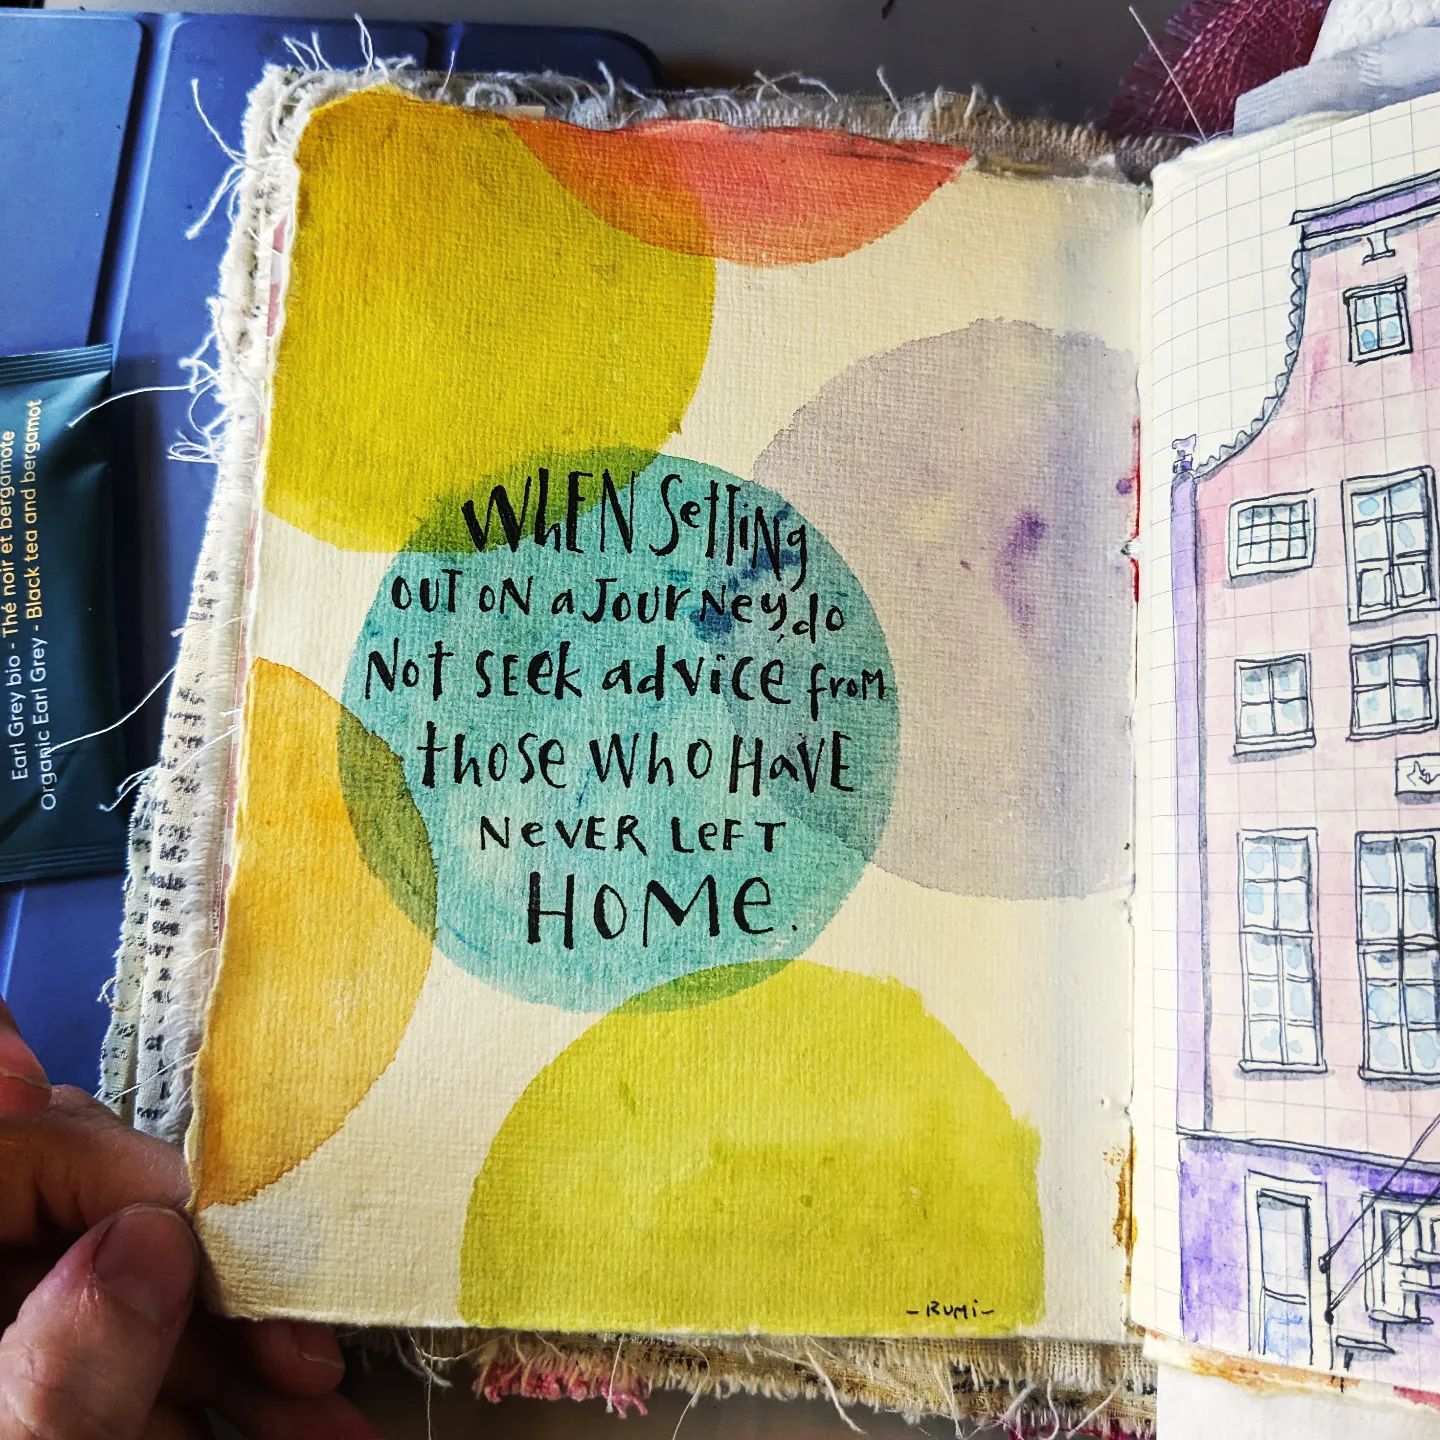 WhEN SettiNg
OUT ON a JOUrNey, do
Not SEEk advice froM
those Who HavE
NeVER LeFT
HOMe.
- RUMi -
Earl Grey bio - Thé noir et bergamote
Organic Earl Grey - Black tea and bergamot